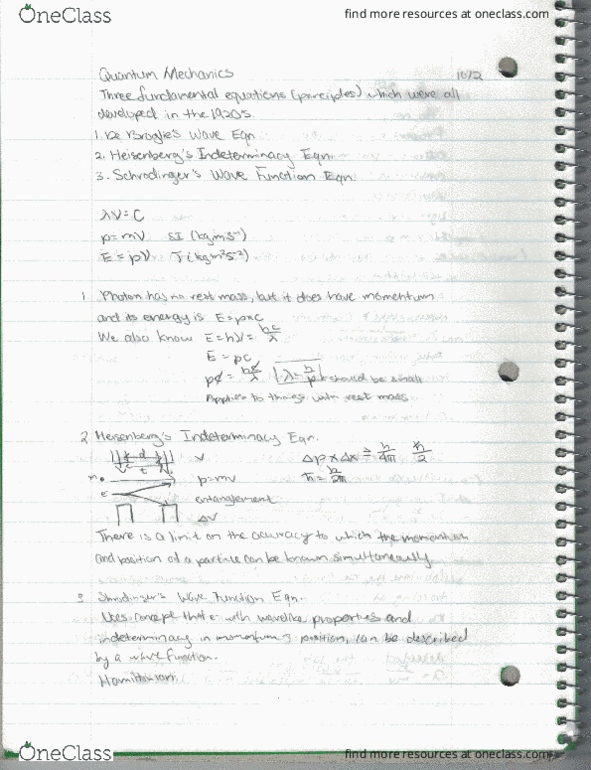 OneClass
find more resources at oneclass.com
Quantum Mechanics 10/2
Three fundamental equations (principles) which were all
developed in the 1920s.
1. De Broglie's Wave Eqn
2. Heisenberg's Indeterminacy Eqn.
3. Schrodinger's Wave Function Eqn
λν=C
p=mv SI (kgms⁻¹)
E=pv J (kgm²s⁻²)
1. Photon has no rest mass, but it does have momentum
and its energy is E=p×c
We also know E=hν= hc/λ
E=pc
pc = hc/λ λ=h/p should be small
Applies to things with rest mass
2 Heisenberg's Indeterminacy Eqn.
d v Δp×Δx ≥ h/4π ħ/2
t
m p=mv ħ=h/2π
e⁻ entanglement
Δv
There is a limit on the accuracy to which the momentum
and position of a particle can be known simultaneously
3 Shrodinger's Wave Function Eqn.
Uses concept that e⁻ with wavelike properties and
indeterminacy in momentum & position, can be described
by a wave function.
OneClass
find more resources at oneclass.com